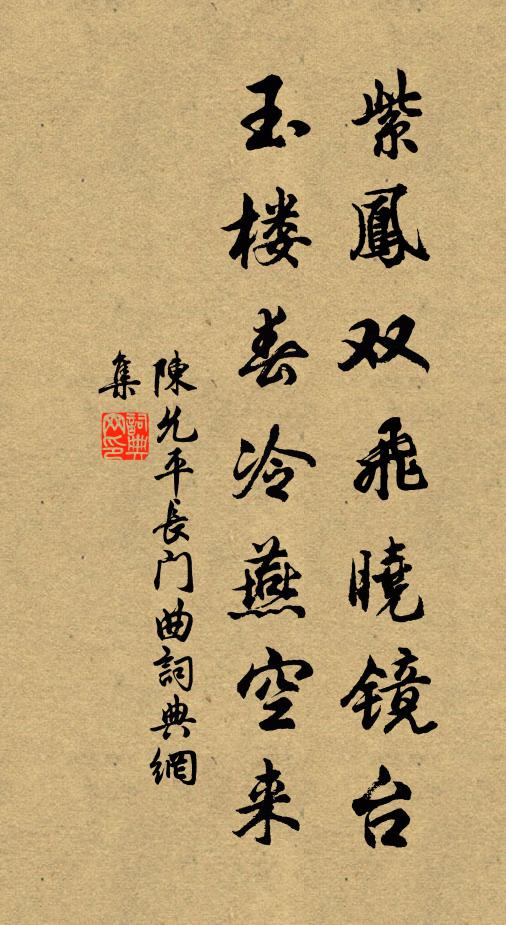 紫鳳双飛曉镜台
玉楼春冷燕空来
陳允平長门曲詞典網
集
詞典网印